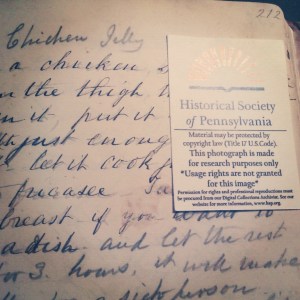 212
Chicken Jelly
a chicken, s
the thigh
it, put it
just enoug
let it cook fo
fricasee Ta
breast if you want to
a dish and let the rest
for 3 hours, it will make
sick person
Historical Society
of Pennsylvania
Material may be protected by
copyright law (Title 17 U.S.Code).
This photograph is made
for research purposes only
*Usage rights are not granted
for this image*
Permission for rights and professional reproductions must
be procured from our Digital Collections Archivist. See our
website for more information, www.hsp.org.